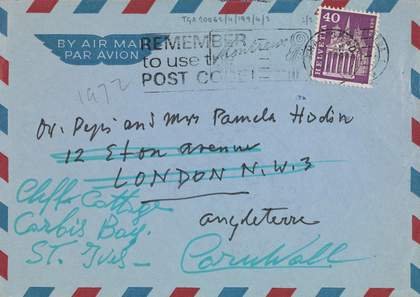 TGA 20062/4/199/4/3
BY AIR MAIL
PAR AVION
REMEMBER
to use th
POST CODE
Montreux
40
HELVETIA
1972
Dr. Pepi and Mrs Pamela Hodin
12 Eton avenue
LONDON N.W.3
Angleterre
Cliffs Cottage
Carbis Bay.
ST. Ives
Cornwall